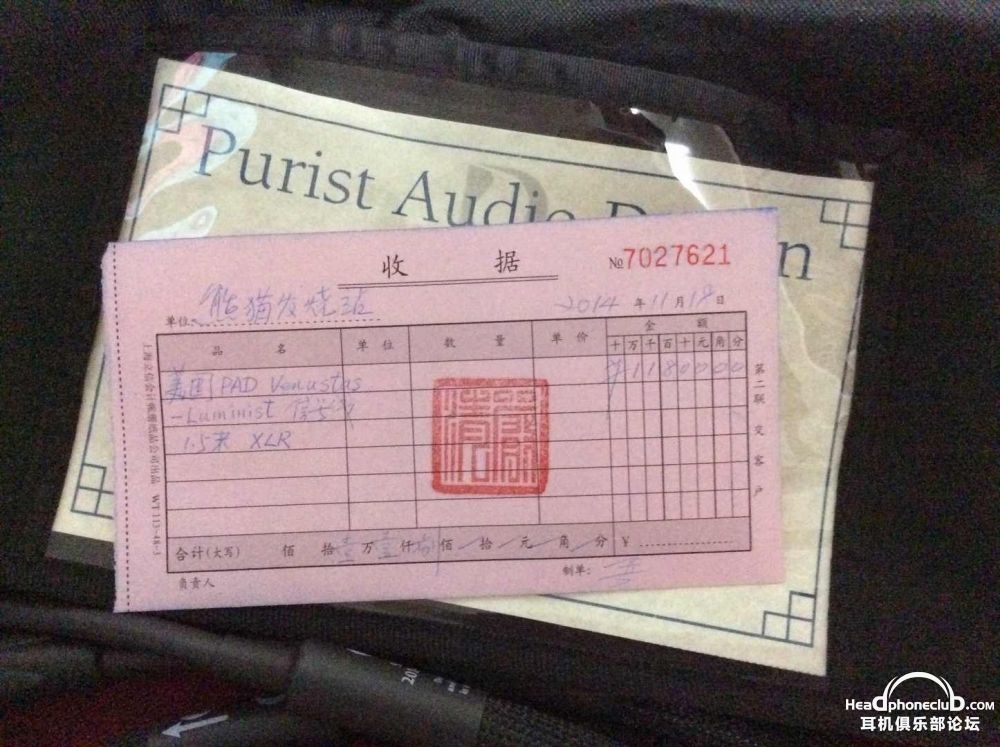 Purist Audio D
n
收据
№7027621
单位: 熊猫发烧班
2014 年 11 月 18 日
品名 单位 数量 单价 金额
十万千百十元角分
美国 PAD Venustas ¥1180000
-Luminist 信号线
1.5米 XLR
合计(大写) 佰 拾壹万壹仟捌佰 拾 元 角 分 ¥
负责人
制单:
第二联交客户
WT113-48-3
HeadphoneclubD.com
耳机俱乐部论坛